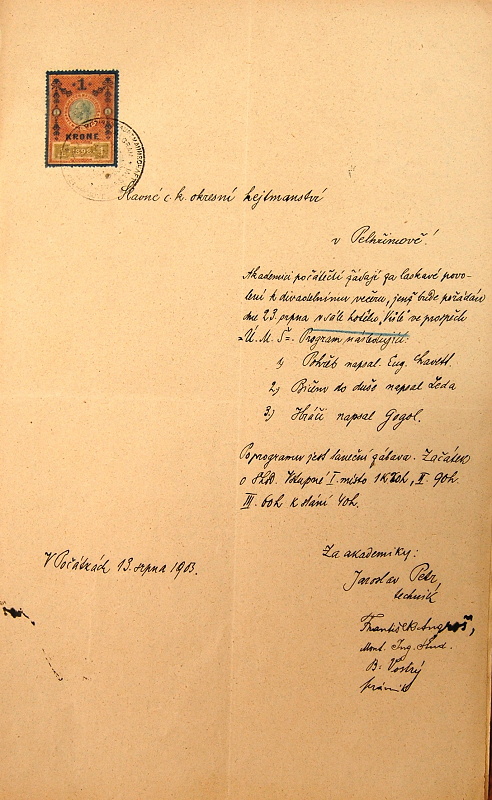 1
KRONE
1898
Slavné c. k. okresní hejtmanství
v Pelhřimově!
Akademici počátečtí žádají za laskavé povo-
lení k divadelnímu večeru, jenž bude pořádán
dne 23. srpna v sále hotelu „ ve prospěch
"Ú. M. Š". Program následující:
1) Pohřeb napsal. Eug.
2) Bičem do duše napsal Leda
3) Hráči napsal Gogol.
Po programu jest taneční zábava. Začátek
o Vstupné I. místo 1K 20h, II. 90h.
III. 60h k stání 40h.
V Počátkách 13. srpna 1903.
Za akademiky:
Jaroslav Petr,
technik
František
Mont. Ing. Stud.
B. Vostrý
právník